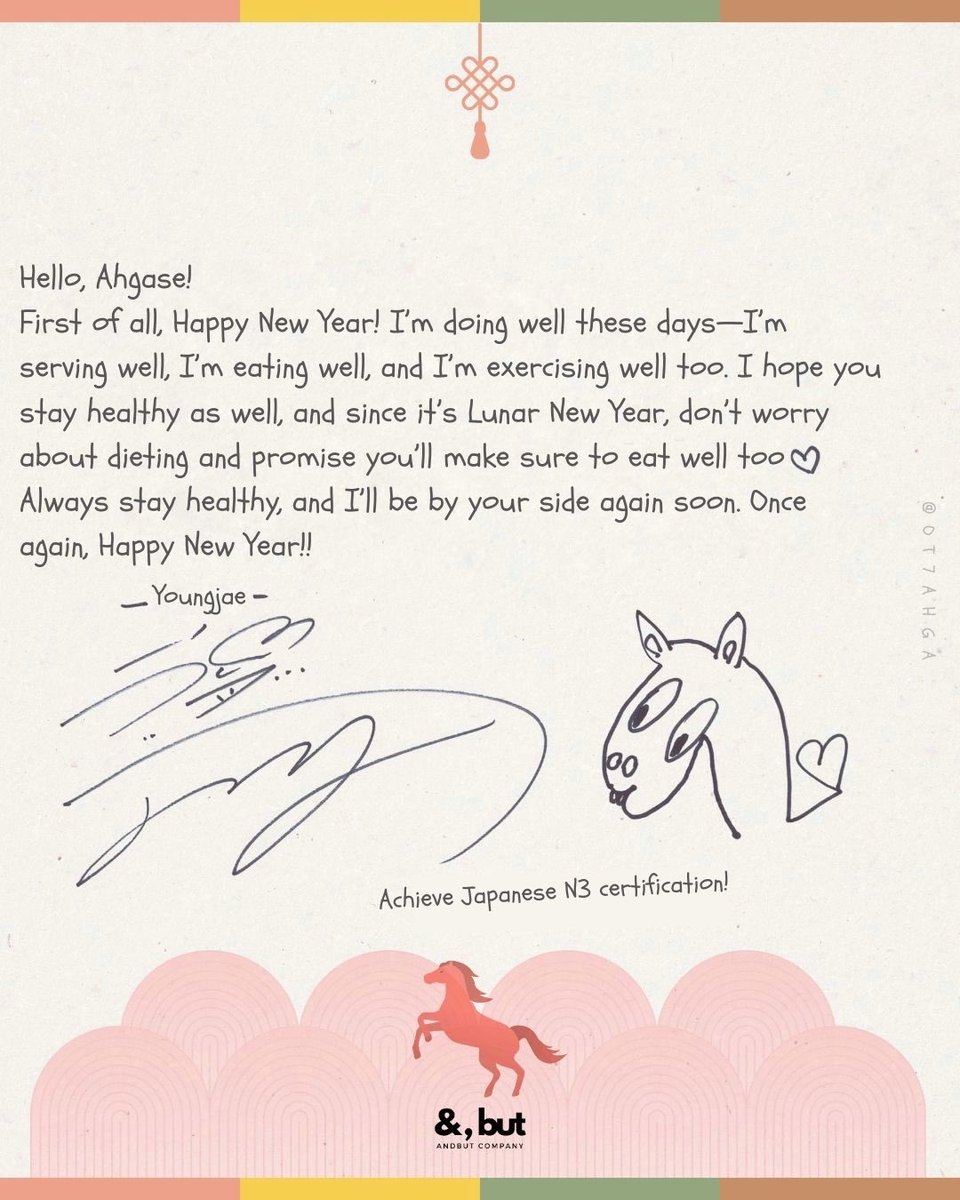 Hello, Ahgase!
First of all, Happy New Year! I'm doing well these days—I'm
serving well, I'm eating well, and I'm exercising well too. I hope you
stay healthy as well, and since it's Lunar New Year, don't worry
about dieting and promise you'll make sure to eat well too♡
Always stay healthy, and I'll be by your side again soon. Once
again, Happy New Year!!
— Youngjae —
@OT7AHGA
Achieve Japanese N3 certification!
&, but
ANDBUT COMPANY